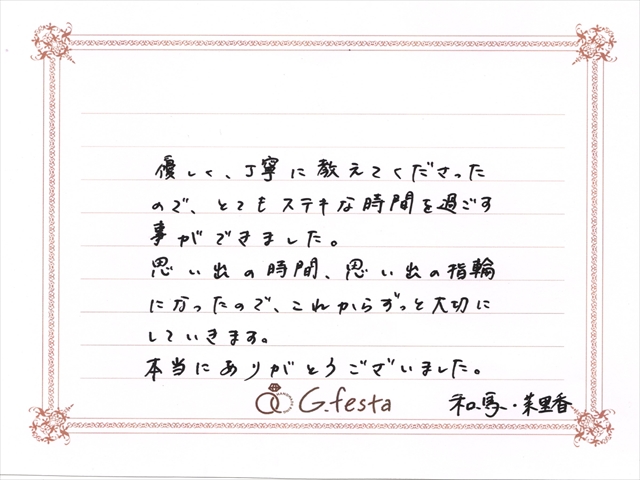 優しく、丁寧に教えてくださった
ので、とてもステキな時間を過ごす
事ができました。
思い出の時間、思い出の指輪
になったので、これからずっと大切に
していきます。
本当にありがとうございました。
G.festa
和馬・茉里香